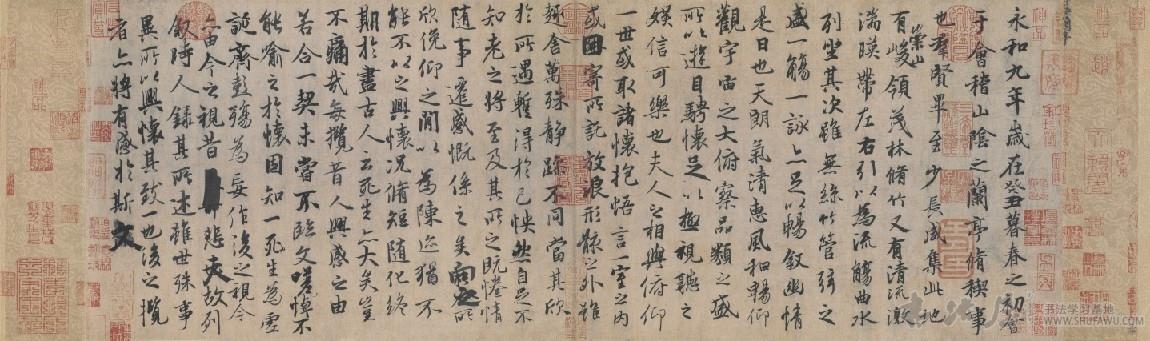 永和九年歲在癸丑暮春之初會
于會稽山陰之蘭亭脩稧事
也羣賢畢至少長咸集此地
有崇山峻領茂林脩竹又有清流激
湍暎帶左右引以為流觴曲水
列坐其次雖無絲竹管弦之
盛一觴一詠亦足以暢敘幽情
是日也天朗氣清惠風和暢仰
觀宇宙之大俯察品類之盛
所以遊目騁懷足以極視聽之
娛信可樂也夫人之相與俯仰
一世或取諸懷抱悟言一室之內
或因寄所託放浪形骸之外雖
趣舍萬殊靜躁不同當其欣
於所遇暫得於己怏然自足不
知老之將至及其所之既惓情
隨事遷感慨係之矣向之所
欣俛仰之閒以為陳迹猶不
能不以之興懷況脩短隨化終
期於盡古人云死生亦大矣豈
不痛哉每攬昔人興感之由
若合一契未嘗不臨文嗟悼不
能喻之於懷固知一死生為虛
誕齊彭殤為妄作後之視今
亦由今之視昔悲夫故列
敘時人錄其所述雖世殊事
異所以興懷其致一也後之攬
者亦將有感於斯文
书法学习基地
WWW.SHUFAWU.COM